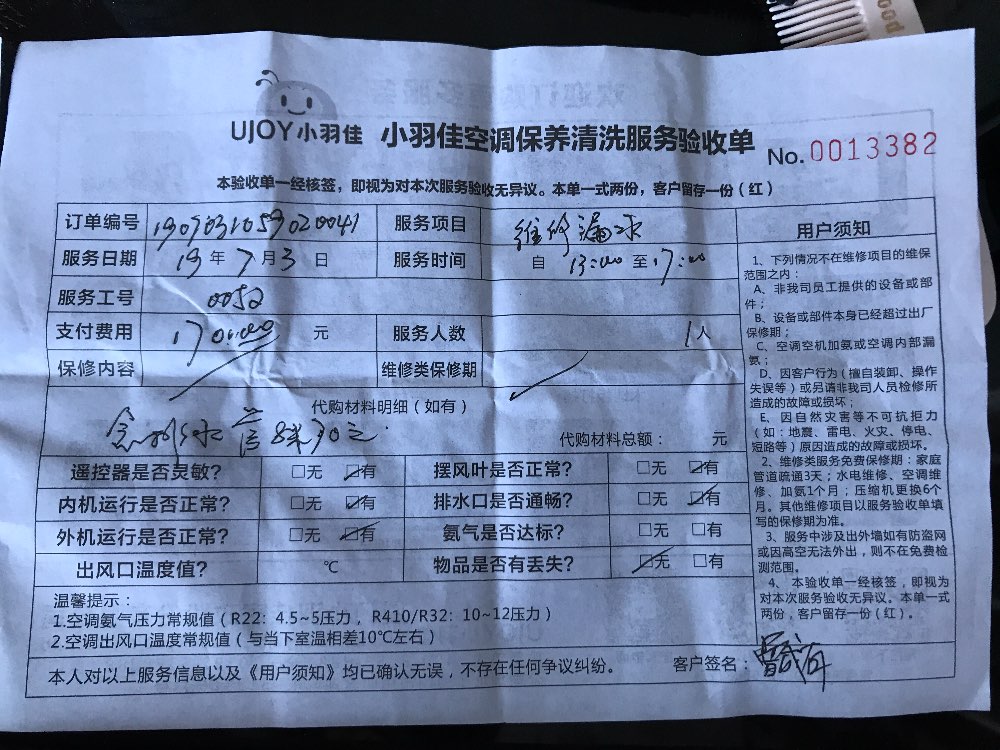 UJOY小羽佳 小羽佳空调保养清洗服务验收单 No.0013382
本验收单一经核签，即视为对本次服务验收无异议。本单一式两份，客户留存一份（红）
订单编号 1907031059020041 服务项目 维修漏水
服务日期 19年7月3日 服务时间 自 13:00 至 17:00
服务工号
支付费用 170.00 元 服务人数 1人
保修内容 维修类保修期
代购材料明细（如有）
代购材料总额： 元
遥控器是否灵敏? 无 有 摆风叶是否正常? 无 有
内机运行是否正常? 无 有 排水口是否通畅? 无 有
外机运行是否正常? 无 有 氨气是否达标? 无 有
出风口温度值? ℃ 物品是否有丢失? 无 有
温馨提示：
1.空调氨气压力常规值（R22: 4.5~5压力，R410/R32: 10~12压力）
2.空调出风口温度常规值（与当下室温相差10℃左右）
本人对以上服务信息以及《用户须知》均已确认无误，不存在任何争议纠纷。 客户签名：
用户须知
1、下列情况不在维修项目的维保
范围之内：
A、非我司员工提供的设备或部
件；
B、设备或部件本身已经超过出厂
保修期；
C、空调空机加氨或空调内部漏
氨；
D、因客户行为（擅自装卸、操作
失误等）或另请非我司人员检修所
造成的故障或损坏；
E、因自然灾害等不可抗拒力
（如：地震、雷电、火灾、停电、
短路等）原因造成的故障或损坏。
2、维修类服务免费保修期：家庭
管道疏通3天；水电维修、空调维
修、加氨1个月；压缩机更换6个
月。其他维修项目以服务验收单填
写的保修期为准。
3、服务中涉及出外墙如有防盗网
或因高空无法外出，则不在免费检
测范围。
4、本验收单一经核签，即视为
对本次服务验收无异议。本单一式
两份，客户留存一份（红）。